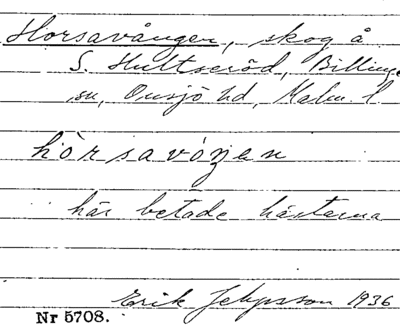 Horsavången, skog å
S. Hultseröd, Billinge
sn, Onsjö hd, Malm. l.
hòrsavóŋen
här betade hästarna
Erik Jepsson 1936
Nr 5708.